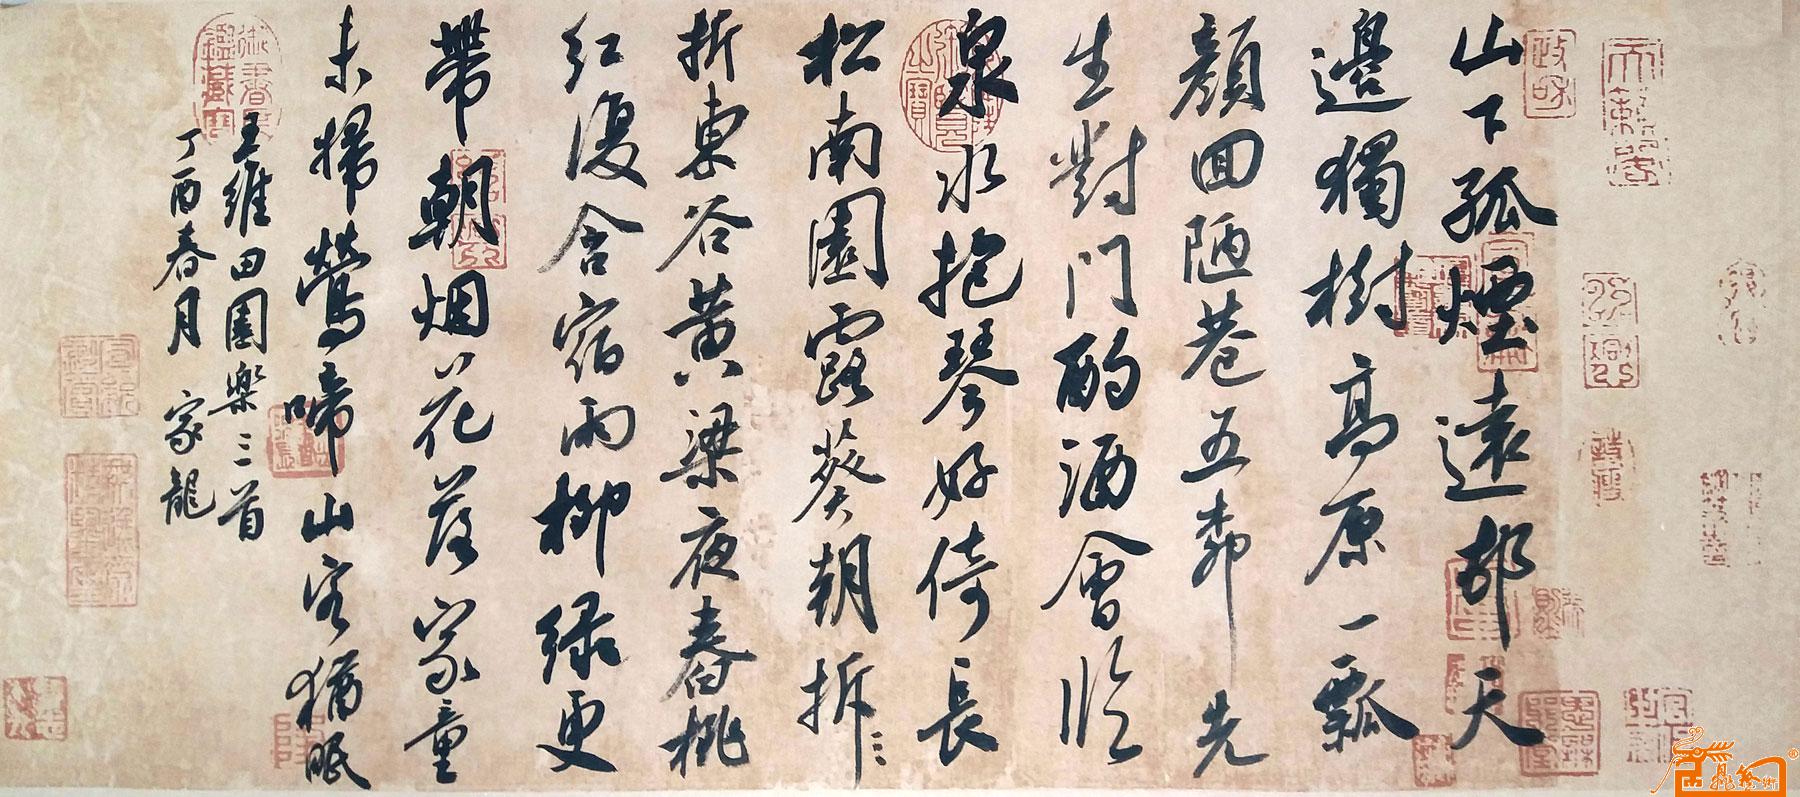 山下孤煙遠邨天
邊獨樹高原一瓢
顏回陋巷五柳先
生對門酌酒會臨
泉水抱琴好倚長
松南園露葵朝拆
折東谷黄粱夜舂桃
红復含宿雨柳绿更
帶朝烟花落家童
未掃鶯啼山客猶眠
王維田園樂三首
丁酉春月 家龍
政和